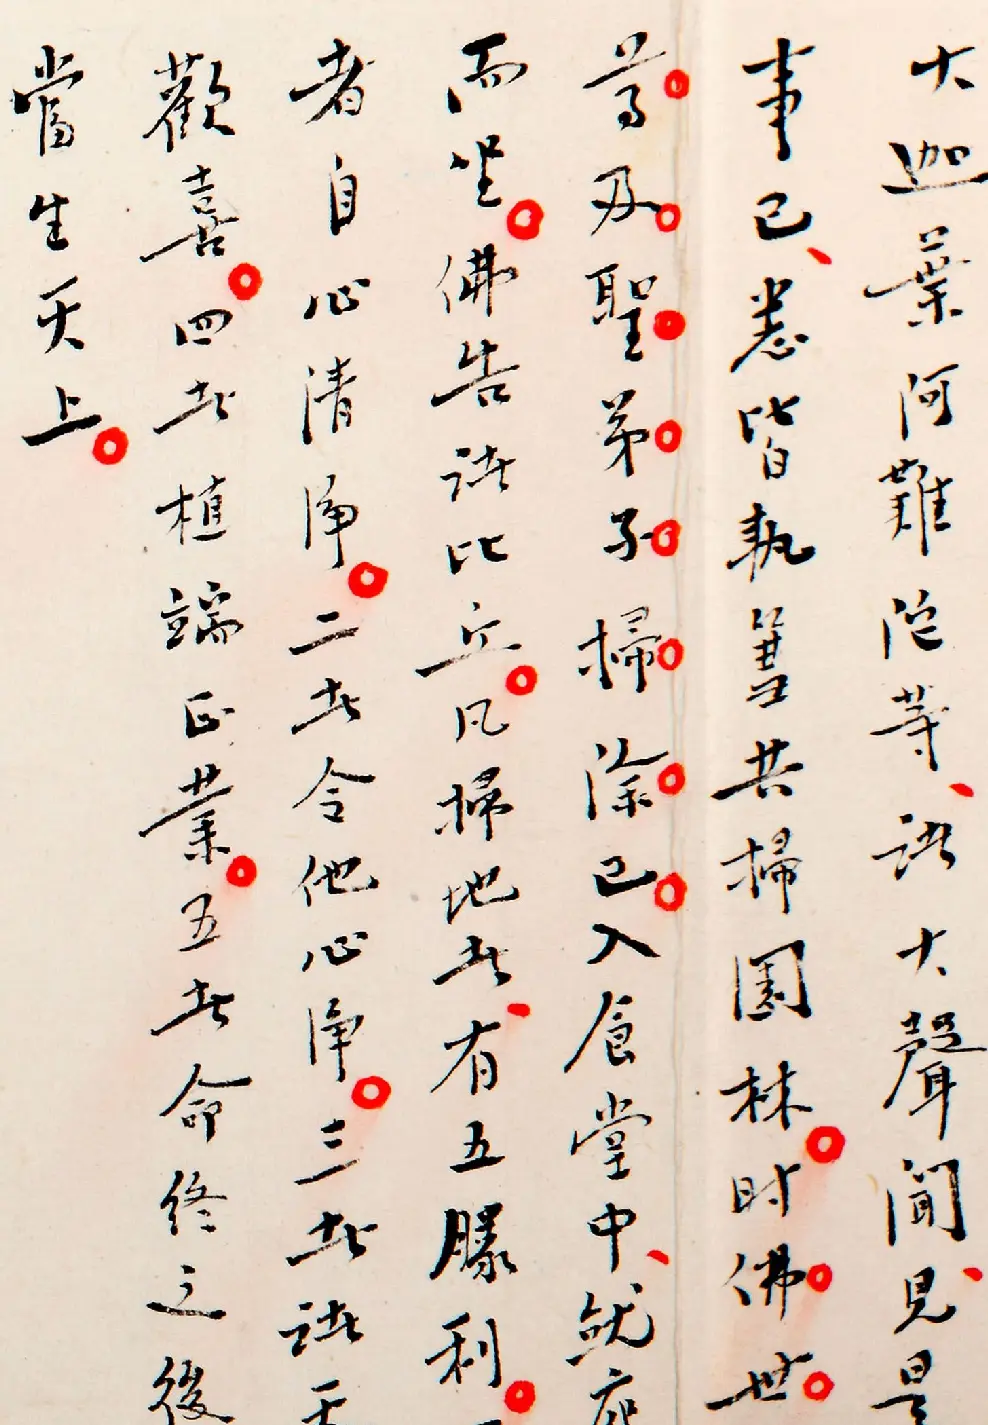 大迦葉阿難陀等、諸大聲聞、見是
事已、悉皆執篲共掃園林。时佛世
尊及聖弟子掃除已入食堂中、就座
而坐。佛告諸比丘。凡掃地者、有五勝利。
者自心清淨。二者令他心淨。三者諸天
歡喜。四者植端正業。五者命終之後
當生天上。